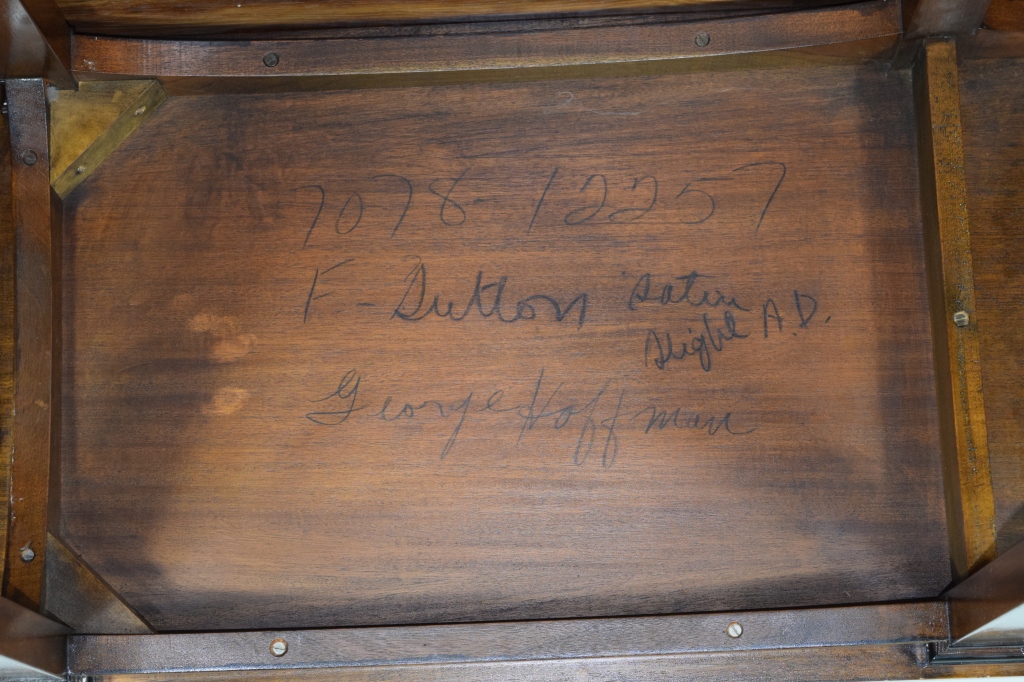 7078-12257
F-Dutton Satin
Slight A.D.
George Hoffman